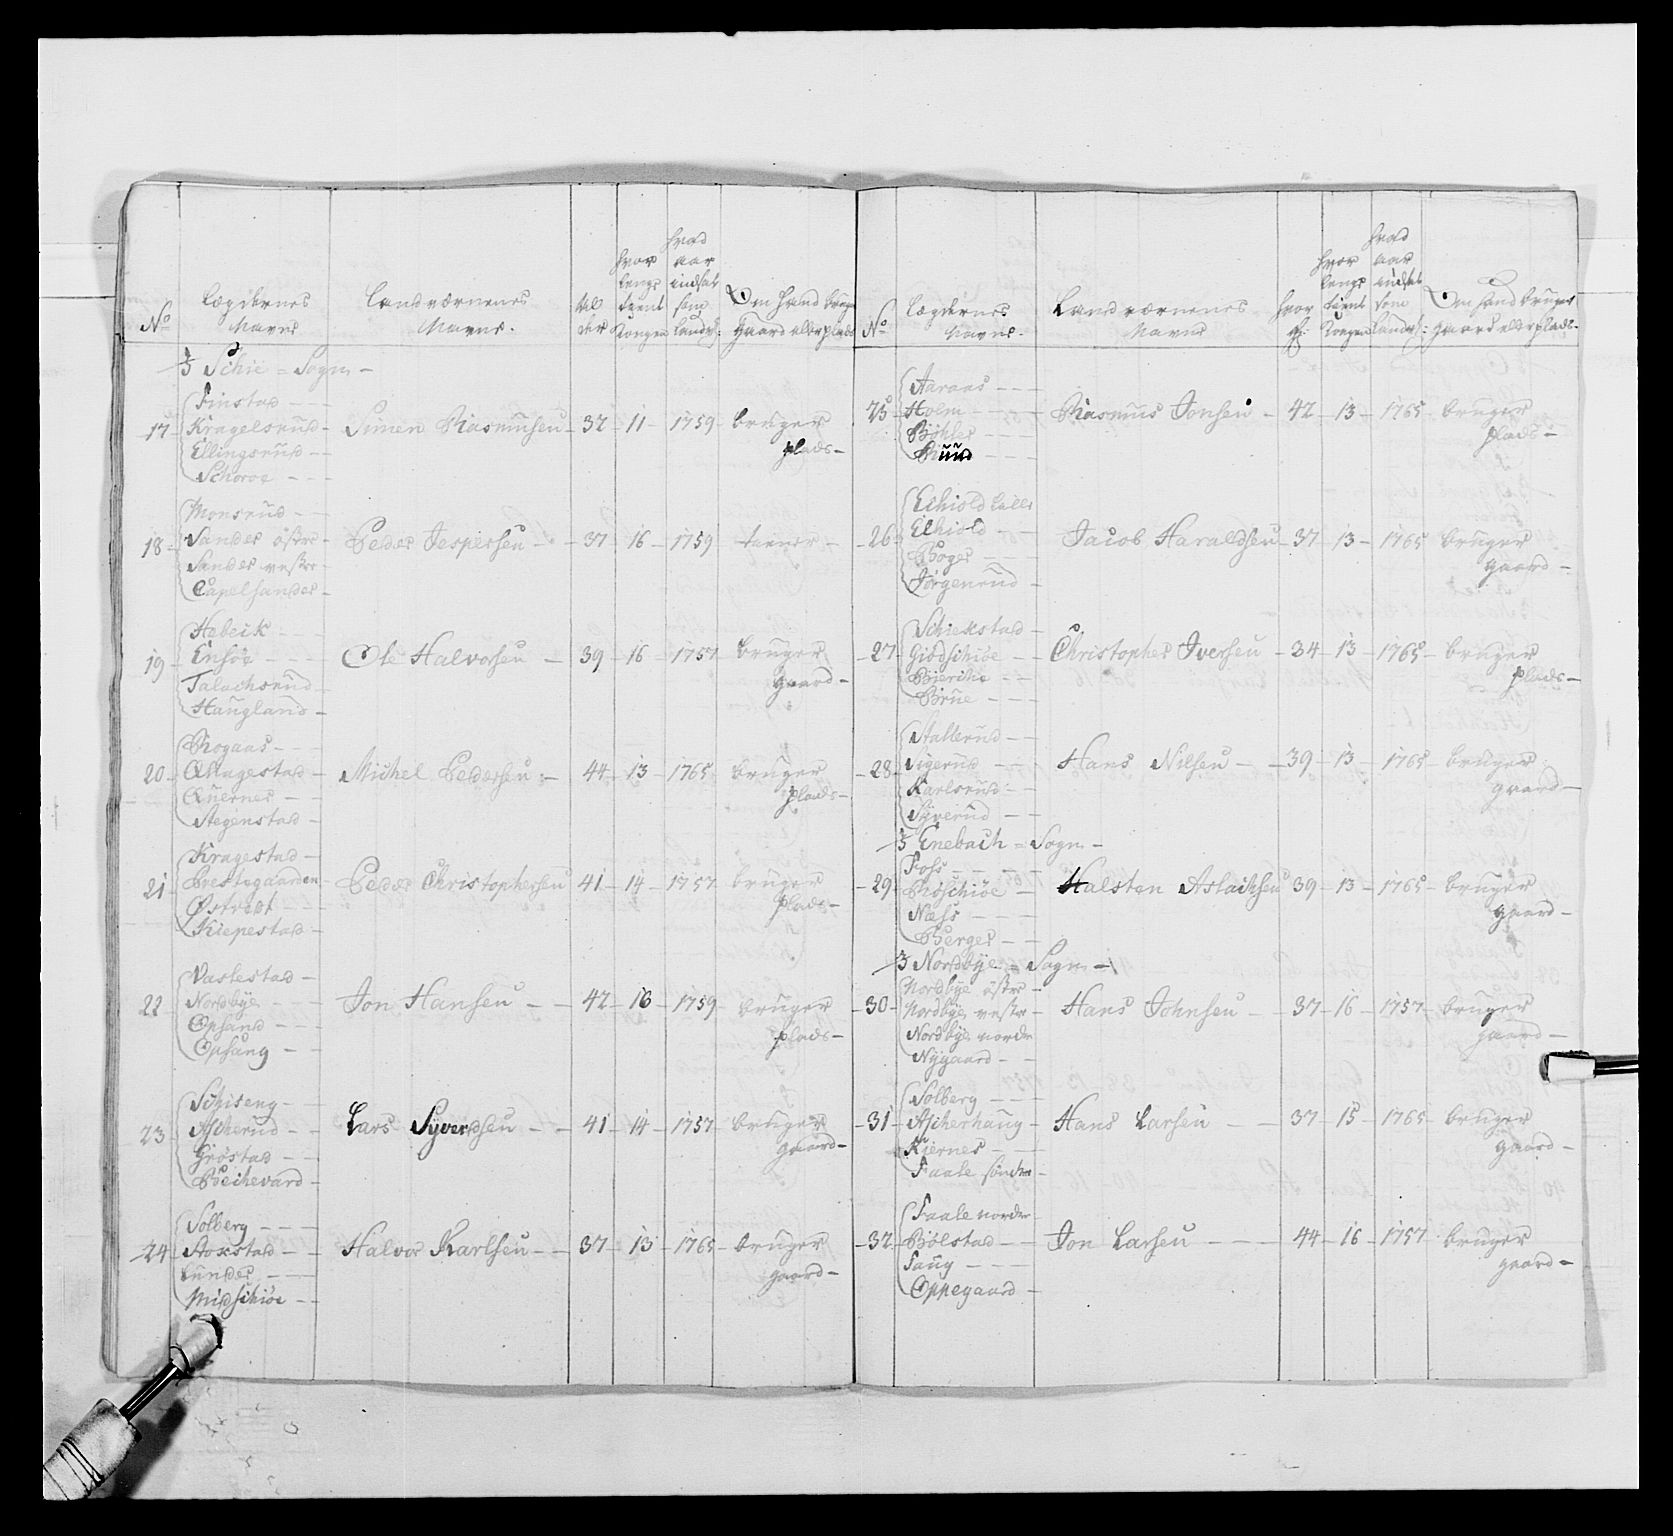 No
Lægdernes
Navne
Landværnenes
Navne.
al
der
hvor
lenge
tient
Kongen
hvad
aar
indsat
som
Landv:
Om hand bruger
Gaard eller plads
I Schie = Sogn -
17 Finstad
Kragelsrud
Ellingsrud
Schoroe
Simen Rasmusen 32 11 1759 bruger
plads
18 Monsrud
Sander østre
Sander vestre
Capelsander
Peder Jespersen 37 16 1759 tiener
19 Hebeik
Ensøe
Talachsrud
Haugland
Ole Halvorsen 39 16 1757 bruger
gaard
20 Rogaas
Qvagestad
Qvernes
Stegenstad
Michel Pedersen 44 13 1765 bruger
plads
21 Kragestad
Prestegaarden
Østvedt
Kiepestad
Peder Christophersen 41 14 1757 bruger
plads
22 Vastestad
Nordbye
Opsand
Opsang
Jon Hansen 42 16 1759 bruger
plads
23
Ascherud
Grøstad
Bøchevard
Lars Syversen 41 14 1757 bruger
gaard
24 Solberg
Stoxstad
Lunder
Midschiøe
Halvor Karlsen 37 13 1765 bruger
gaard
No
Lægdernes
Navne.
Landværnenes
Navne
hvor
gl:
hvor
lenge
tient
Kongen
hvad
aar
indsat
som
Landv:
Om hand bruger
gaard eller plads
25 Aaraas
Holm
Bøhler
Ruud
Rasmus Jonsen 42 13 1765 bruger
plads
26 Echiold Lille
Echiold
Boger
Jørgenrud
Jacob Haraldsen 37 13 1765 bruger
gaard
27 Schiekstad
Giødschiøe
Bierche
Brue
Christopher Iversen 34 13 1765 bruger
plads
28 Stallerud
Sigerud
Karlsrud
Syverud
Hans Nilsen 39 13 1765 bruger
gaard
I Enebach = Sogn -
29 Foss
Røschiøe
Næss
Berger
Halsten Aslachsen 39 13 1765 bruger
gaard
I Nordbye = Sogn -
30 Nordbye østre
Nordbye vestre
Nordbye nordre
Nygaard
Hans Johnsen 37 16 1757 bruger
gaard
31 Solberg
Ascherhaug
Kiernes
Faale søndre
Hans Larsen 37 15 1765 bruger
gaard
32 Faale nordre
Bølstad
Faug
Oppegaard
Jon Larsen 44 16 1757 bruger
gaard